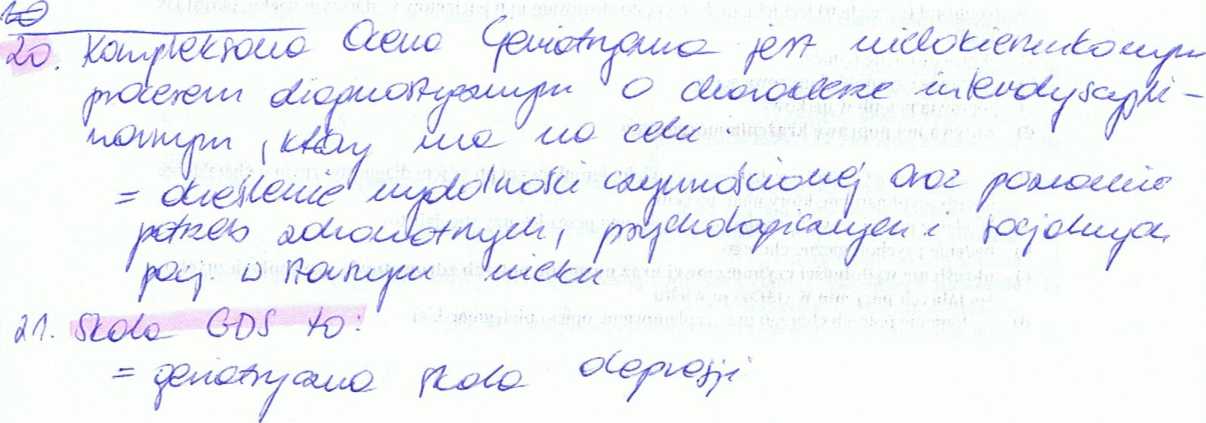 20. Kompleksowa Ocena Geriatryczna jest wielokierunkowym
procesem diagnostycznym o charakterze interdyscypli-
narnym, który ma na celu
= określenie wydolności czynnościowej oraz poznanie
potrzeb zdrowotnych, psychologicznych i socjalnych
pacj. w starszym wieku
21. Skala GDS to:
= geriatryczna skala depresji